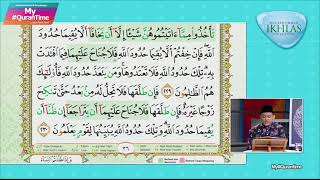 My
#QuranTime
IKHLAS
تَأْخُذُوا۟ مِمَّآ ءَاتَيْتُمُوهُنَّ شَيْـًٔا إِلَّآ أَن يَخَافَآ أَلَّا يُقِيمَا حُدُودَ
ٱللَّهِ فَإِنْ خِفْتُمْ أَلَّا يُقِيمَا حُدُودَ ٱللَّهِ فَلَا جُنَاحَ عَلَيْهِمَا فِيمَا ٱفْتَدَتْ
بِهِۦ تِلْكَ حُدُودُ ٱللَّهِ فَلَا تَعْتَدُوهَا وَمَن يَتَعَدَّ حُدُودَ ٱللَّهِ فَأُو۟لَـٰٓئِكَ
هُمُ ٱلظَّـٰلِمُونَ ٢٢٩ فَإِن طَلَّقَهَا فَلَا تَحِلُّ لَهُۥ مِنۢ بَعْدُ حَتَّىٰ تَنكِحَ
زَوْجًا غَيْرَهُۥ فَإِن طَلَّقَهَا فَلَا جُنَاحَ عَلَيْهِمَآ أَن يَتَرَاجَعَآ إِن ظَنَّآ أَن
يُقِيمَا حُدُودَ ٱللَّهِ وَتِلْكَ حُدُودُ ٱللَّهِ يُبَيِّنُهَا لِقَوْمٍ يَعْلَمُونَ ٢٣٠
٣٦
My#QuranTime